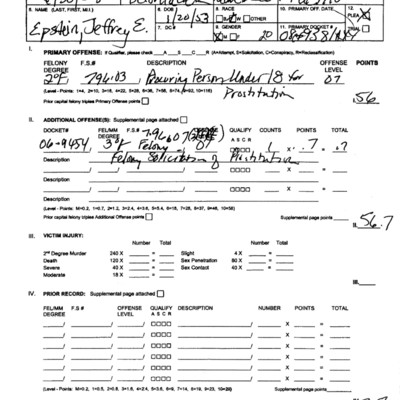 5. NAME (LAST, FIRST, M.I.)
Epstein, Jeffrey E.
1/20/53
7. DC#
8. RACE
OTHER
9. GENDER
M F
10. PRIMARY OFF. DATE
11. PRIMARY DOCKET #
12.
PLEA
I. PRIMARY OFFENSE: If Qualifier, please check A S C R (A=Attempt, S=Solicitation, C=Conspiracy, R=Reclassification)
FELONY DEGREE F.S.# DESCRIPTION OFFENSE LEVEL POINTS
2°F 796.03 Procuring Person Under 18 for Prostitution 07 56
(Level - Points: 1=4, 2=10, 3=16, 4=22, 5=28, 6=36, 7=56, 8=74, 9=92, 10=116)
Prior capital felony triples Primary Offense points I.
II. ADDITIONAL OFFENSE(S): Supplemental page attached
DOCKET# FEL/MM DEGREE F.S.# OFFENSE LEVEL QUALIFY A S C R COUNTS POINTS TOTAL
06-9454 3° Felony 796.07 1 X .7 = .7
Description Felony Solicitation of Prostitution
/ / X =
Description
(Level - Points: M=0.2, 1=0.7, 2=1.2, 3=2.4, 4=3.6, 5=5.4, 6=18, 7=28, 8=37, 9=46, 10=58)
Prior capital felony triples Additional Offense points Supplemental page points
II. 56.7
III. VICTIM INJURY:
Number Total Number Total
2nd Degree Murder 240 X = Slight 4 X =
Death 120 X = Sex Penetration 80 X =
Severe 40 X = Sex Contact 40 X =
Moderate 18 X =
III.
IV. PRIOR RECORD: Supplemental page attached
FEL/MM DEGREE F.S.# OFFENSE LEVEL QUALIFY A S C R DESCRIPTION NUMBER POINTS TOTAL
/ / X =
/ / X =
/ / X =
/ / X =
/ / X =
/ / X =
(Level - Points: M=0.2, 1=0.5, 2=0.8, 3=1.6, 4=2.4, 5=3.6, 6=9, 7=14, 8=19, 9=23, 10=29)